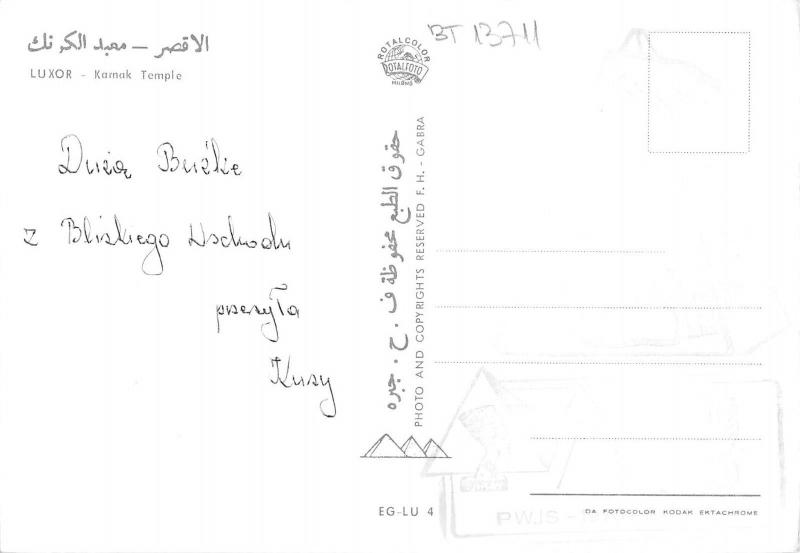 الاقصر – معبد الكرنك
LUXOR - Karnak Temple
Dużą Buźkę
z Bliskiego Wschodu
przesyła
Kusy
BT 13711
ROTALCOLOR
ROTALFOTO
MILANO
حقوق الطبع محفوظة ف . ح . جبره
PHOTO AND COPYRIGHTS RESERVED F. H. - GABRA
EG-LU 4
DA FOTOCOLOR KODAK EKTACHROME